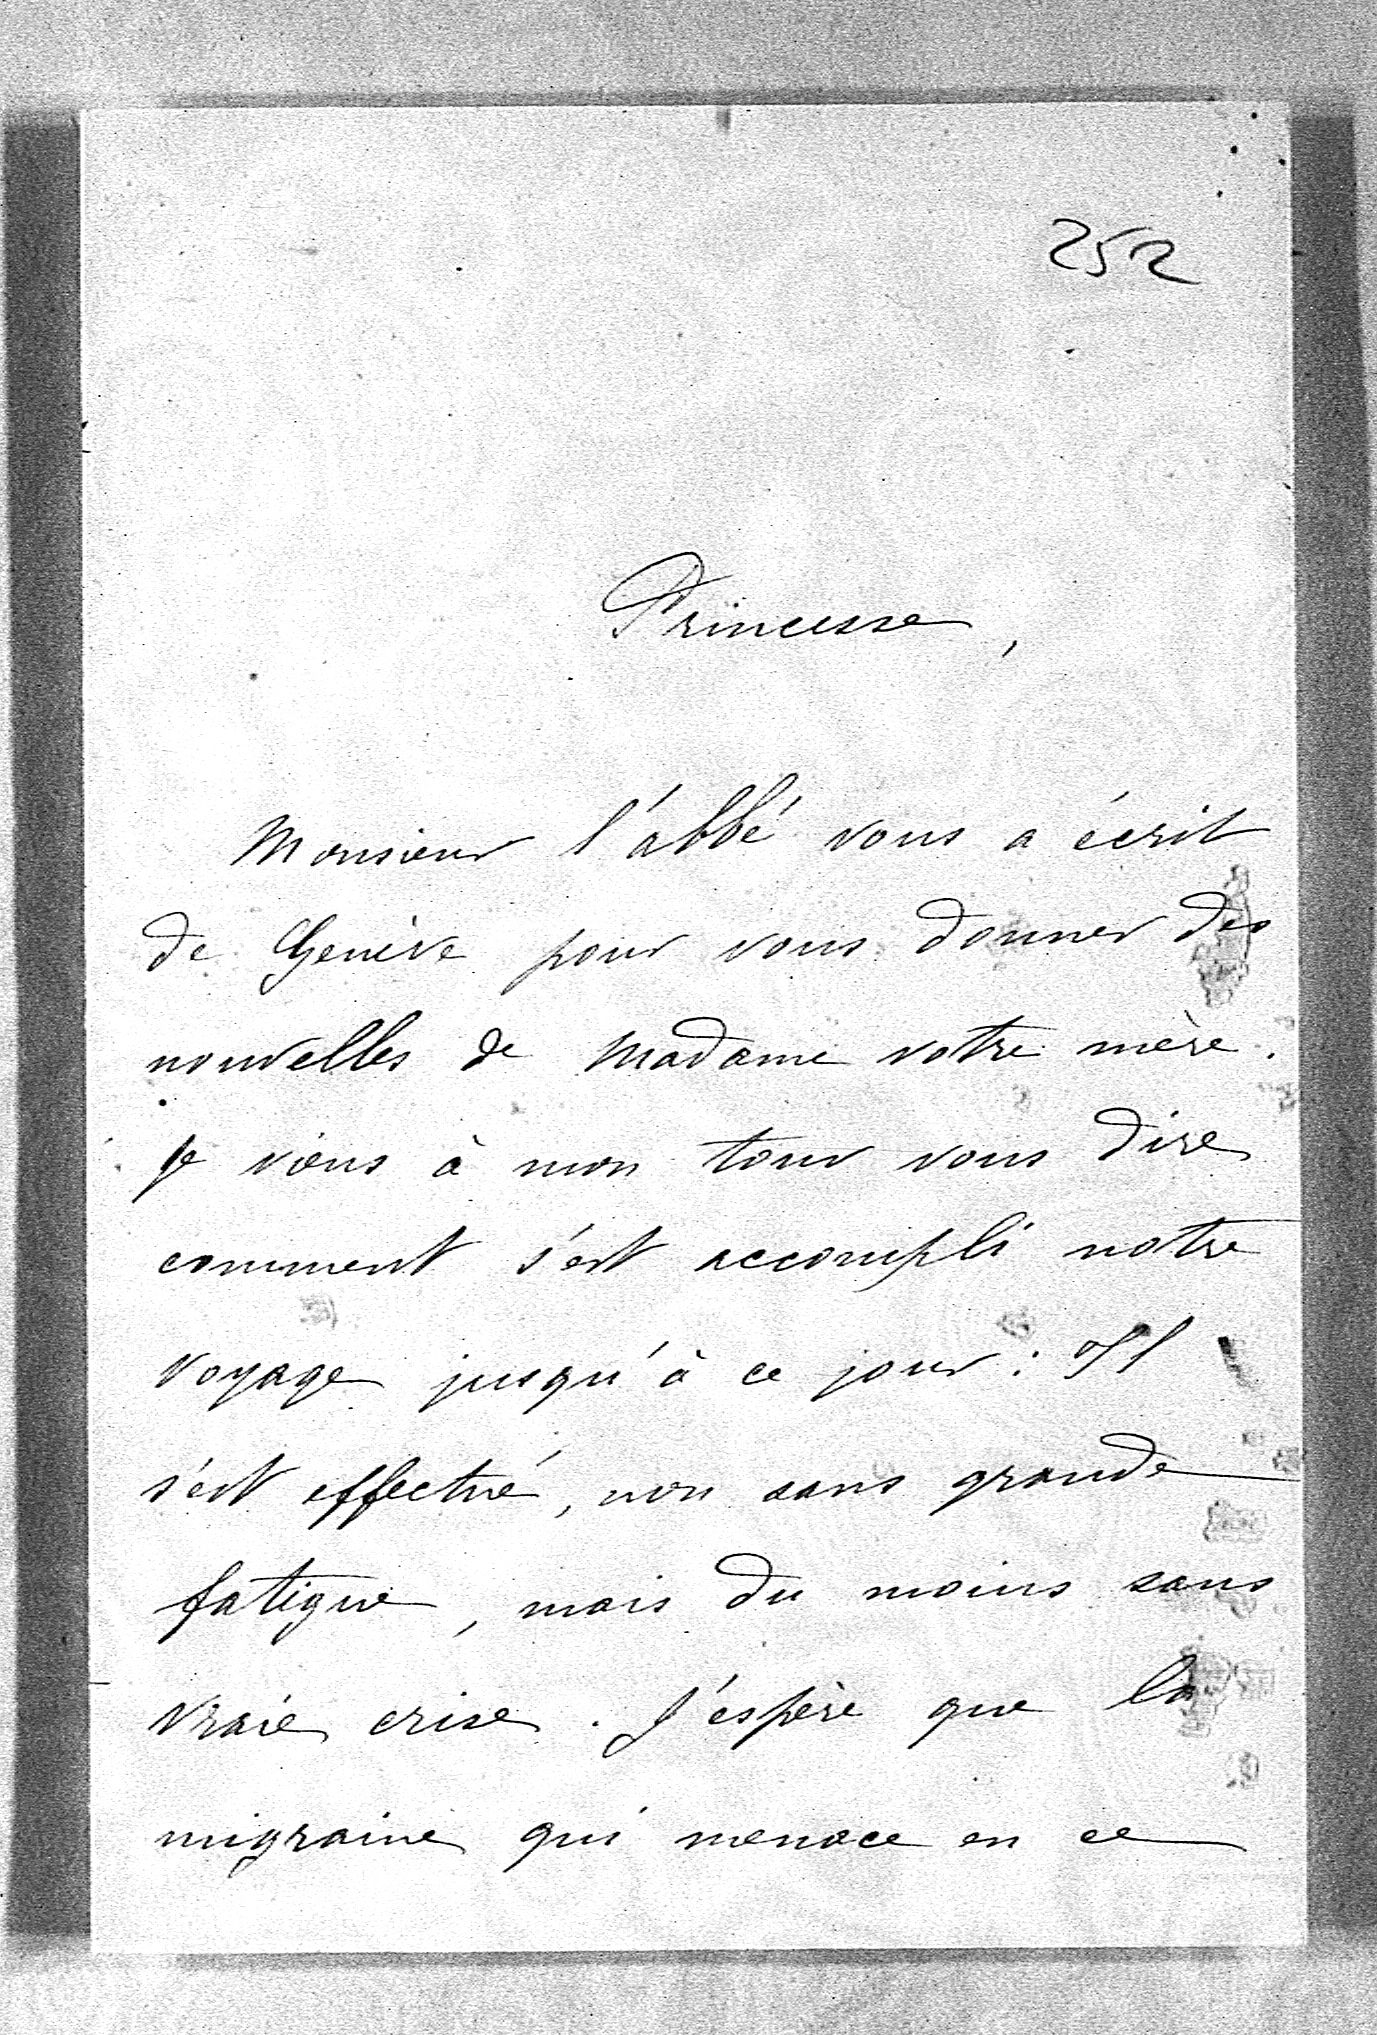 252
Princesse,
Monsieur l'abbé vous a écrit
de Genève pour vous donner des
nouvelles de Madame votre mère.
Je viens à mon tour vous dire
comment s'est accompli notre
voyage jusqu'à ce jour : Il
s'est effectué, non sans grande
fatigue, mais du moins sans
vraie crise. J'espère que la
migraine qui menace en ce